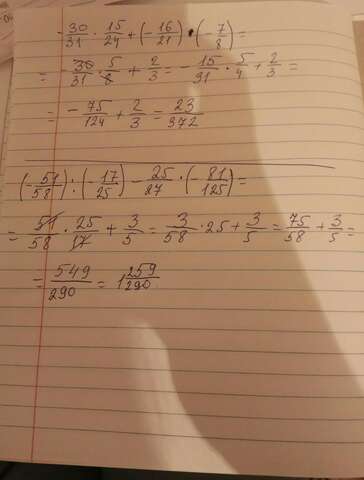 -30/31 · 15/24 + (-16/21) · (-7/8) =
= -30/31 · 5/8 + 2/3 = -15/31 · 5/4 + 2/3 =
= -75/124 + 2/3 = 23/372
(-51/58) : (-17/25) - 25/27 · (-81/125) =
= 51/58 · 25/17 + 3/5 = 3/58 · 25 + 3/5 = 75/58 + 3/5 =
= 549/290 = 1 259/290